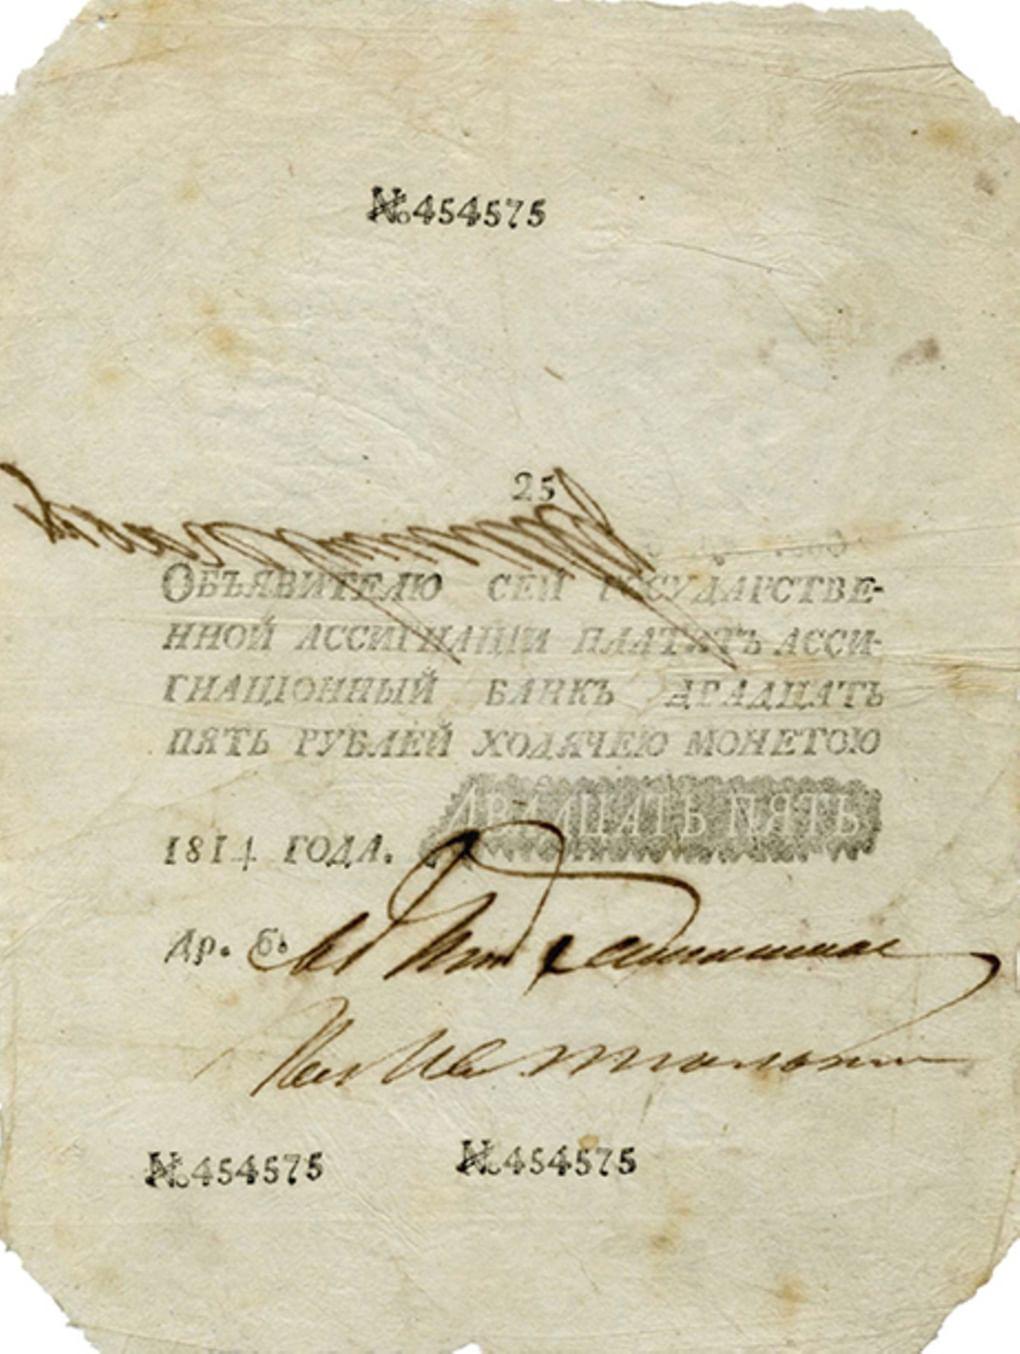 № 454575
25
ОБЪЯВИТЕЛЮ СЕЙ ГОСУДАРСТВЕ-
ННОЙ АССИГНАЦІИ ПЛАТИТЪ АССИ-
ГНАЦІОННЫЙ БАНКЪ ДВАДЦАТЬ
ПЯТЬ РУБЛЕЙ ХОДЯЧЕЮ МОНЕТОЮ
ДВАДЦАТЬ ПЯТЬ
1814 ГОДА.
№ 454575 № 454575